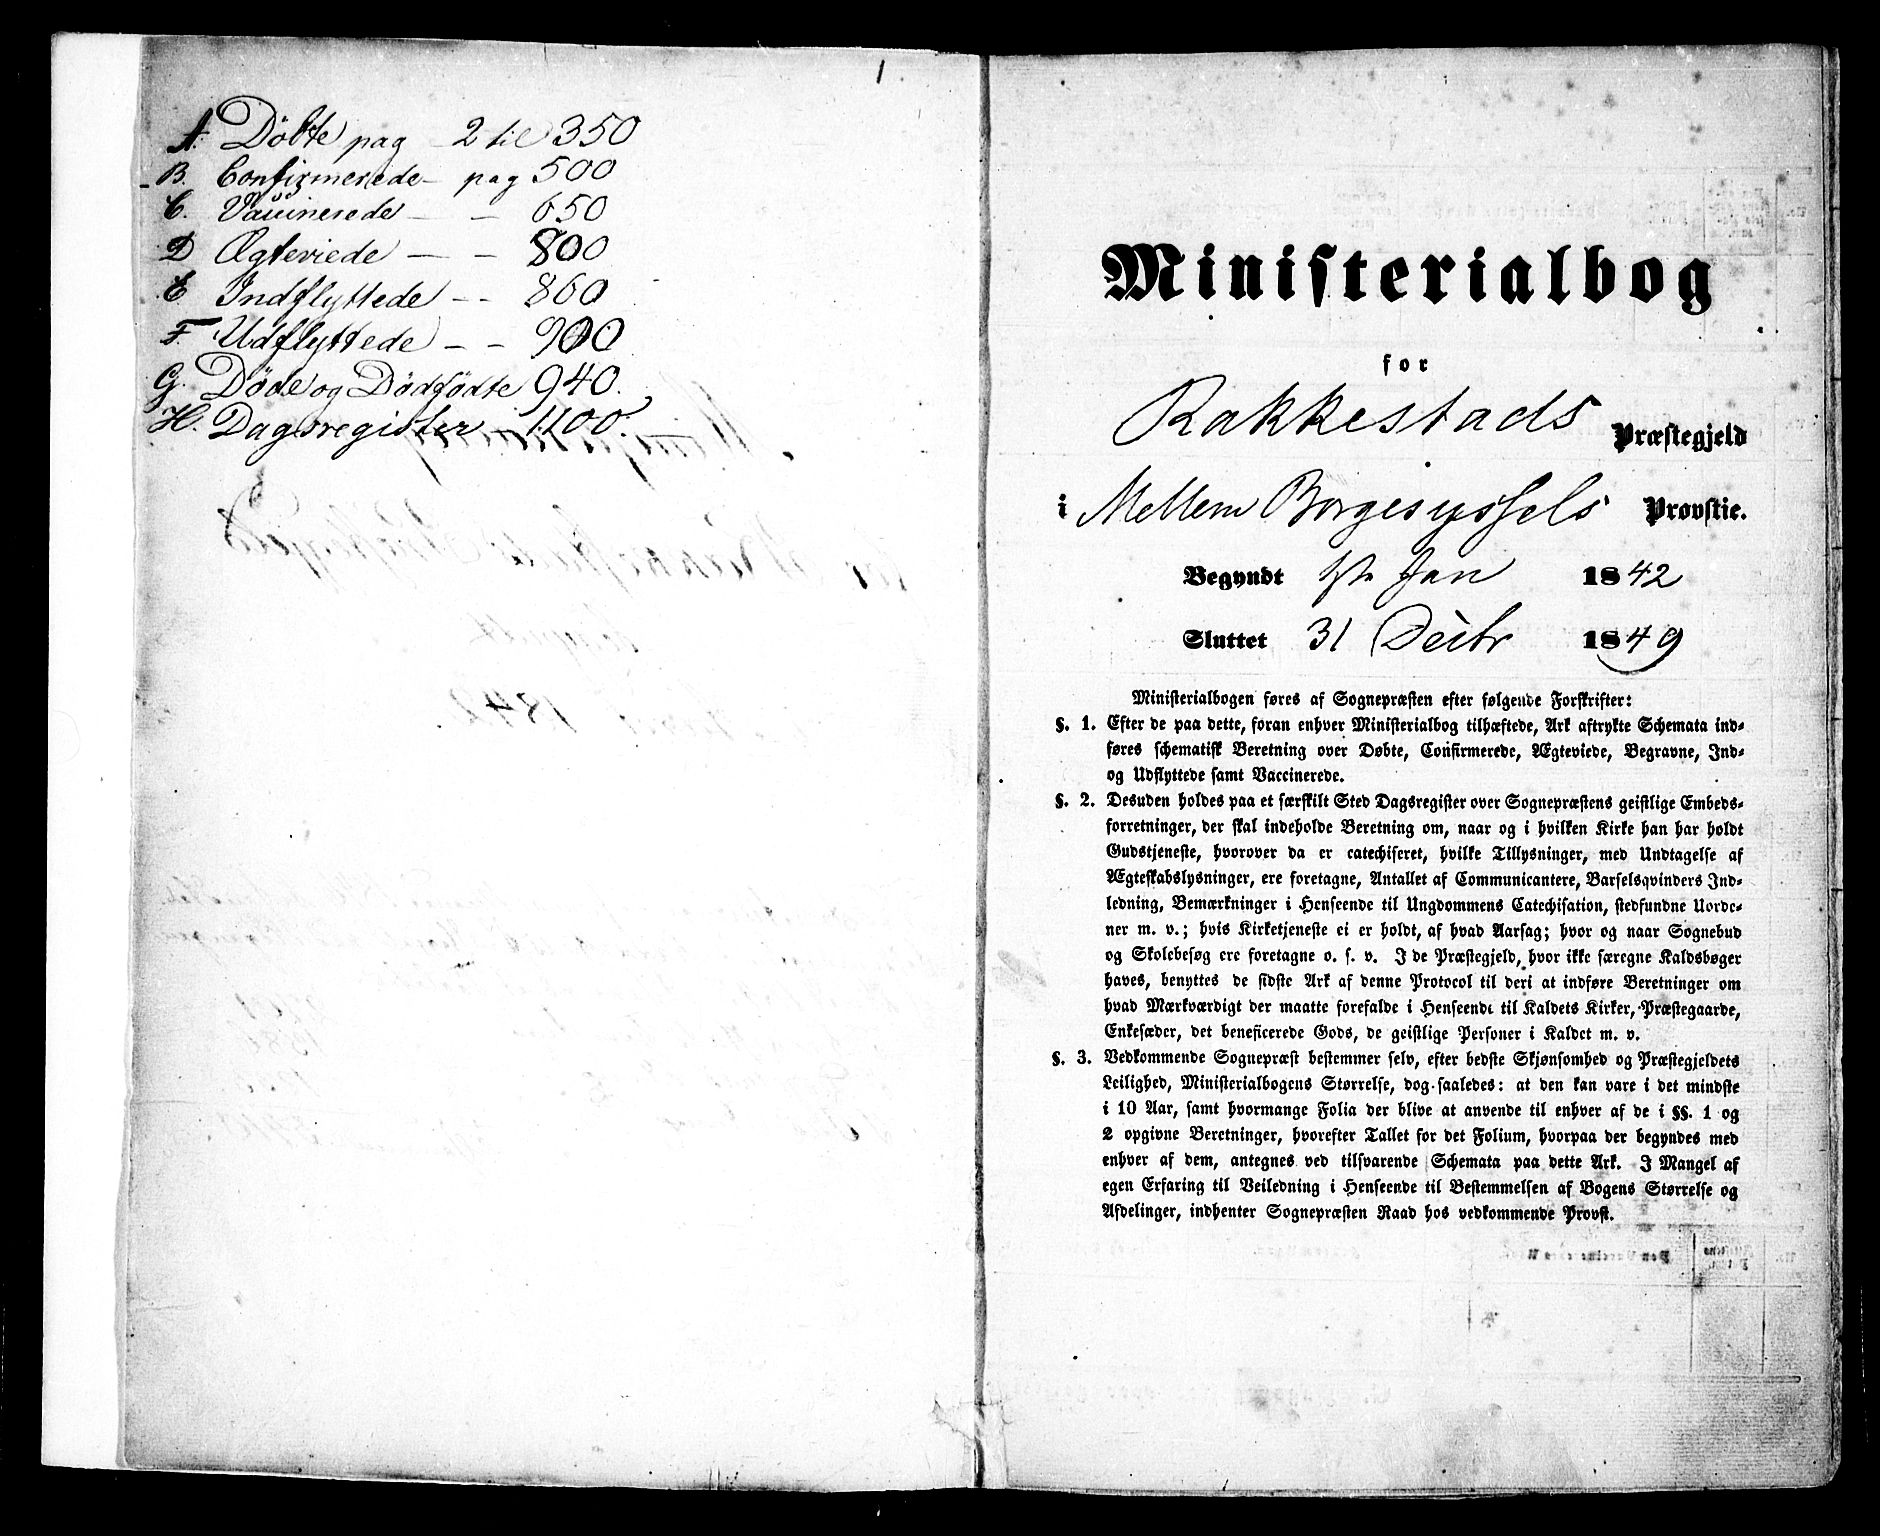 1
A. Döbte pag - 2 til 350
B. Confirmerede - pag 500
C. Vaccinerede - - 650
D Ægteviede - - 800
E. Indflyttede - - 860
F. Udflyttede - - 900
G. Døde og Dödfödte 940.
H. Dagsregister 1100.
Ministerialbog
for
Rakkestads Præstegjeld
i Mellem Borgesyssels Provstie.
Begyndt 1ste Jan 1842
Sluttet 31 Decbr 1849
Ministerialbogen føres af Sognepræsten efter følgende Forskrifter:
§. 1. Efter de paa dette, foran enhver Ministerialbog tilhæftede, Ark aftrykte Schemata ind-
føres schematisk Beretning over Døbte, Confirmerede, Ægteviede, Begravne, Ind-
og Udflyttede samt Vaccinerede.
§. 2. Desuden holdes paa et særskilt Sted Dagsregister over Sognepræstens geistlige Embeds-
forretninger, der skal indeholde Beretning om, naar og i hvilken Kirke han har holdt
Gudstjeneste, hvorover da er catechiseret, hvilke Tillysninger, med Undtagelse af
Ægteskabslysninger, ere foretagne, Antallet af Communicantere, Barselqvinders Ind-
ledning, Bemærkninger i Henseende til Ungdommens Catechisation, stedfundne Uorde-
ner m. v.; hvis Kirketjeneste ei er holdt, af hvad Aarsag; hvor og naar Sognebud
og Skolebesøg ere foretagne o. s. v. I de Præstegjeld, hvor ikke særegne Kaldsbøger
haves, benyttes de sidste Ark af denne Protocol til deri at indføre Beretninger om
hvad Mærkværdigt der maatte forefalde i Henseende til Kaldets Kirker, Præstegaarde,
Enkesæder, det beneficerede Gods, de geistlige Personer i Kaldet m. v.
§. 3. Vedkommende Sognepræst bestemmer selv, efter bedste Skjønsomhed og Præstegjeldets
Leilighed, Ministerialbogens Størrelse, dog saaledes: at den kan vare i det mindste
i 10 Aar, samt hvormange Folia der blive at anvende til enhver af de i §§. 1 og
2 opgivne Beretninger, hvorefter Tallet for det Folium, hvorpaa der begyndes med
enhver af dem, antegnes ved tilsvarende Schemata paa dette Ark. I Mangel af
egen Erfaring til Veiledning i Henseende til Bestemmelsen af Bogens Størrelse og
Afdelinger, indhenter Sognepræsten Raad hos vedkommende Provst.